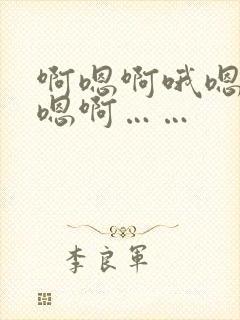 啊嗯啊哦嗯
嗯啊……
李良军